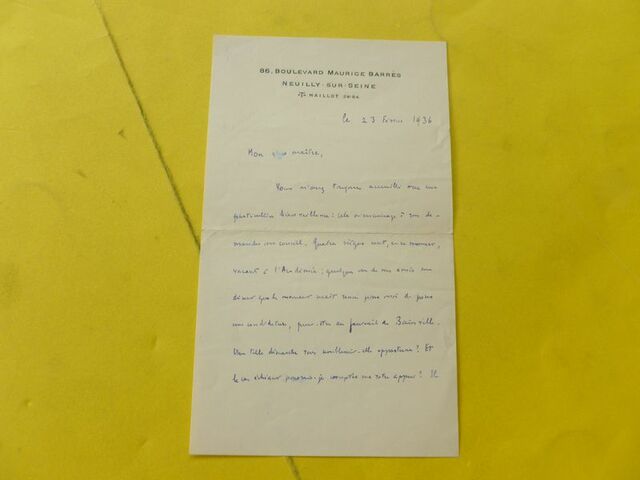 86, BOULEVARD MAURICE BARRÈS
NEUILLY-SUR-SEINE
MAILLOT
le 23 février 1936
Mon maître,
Vous m'avez toujours accueilli avec une
particulière bienveillance : cela m'encourage à vous de-
mander un conseil. Quatre sièges sont, en ce moment,
vacants à l'Académie ; quelques uns de mes amis me
disent que le moment serait venu pour moi de poser
une candidature, peut-être au fauteuil de Bainville.
Une telle démarche vous semblerait-elle opportune ? Et
le cas échéant pourrais-je compter sur votre appui ? Il